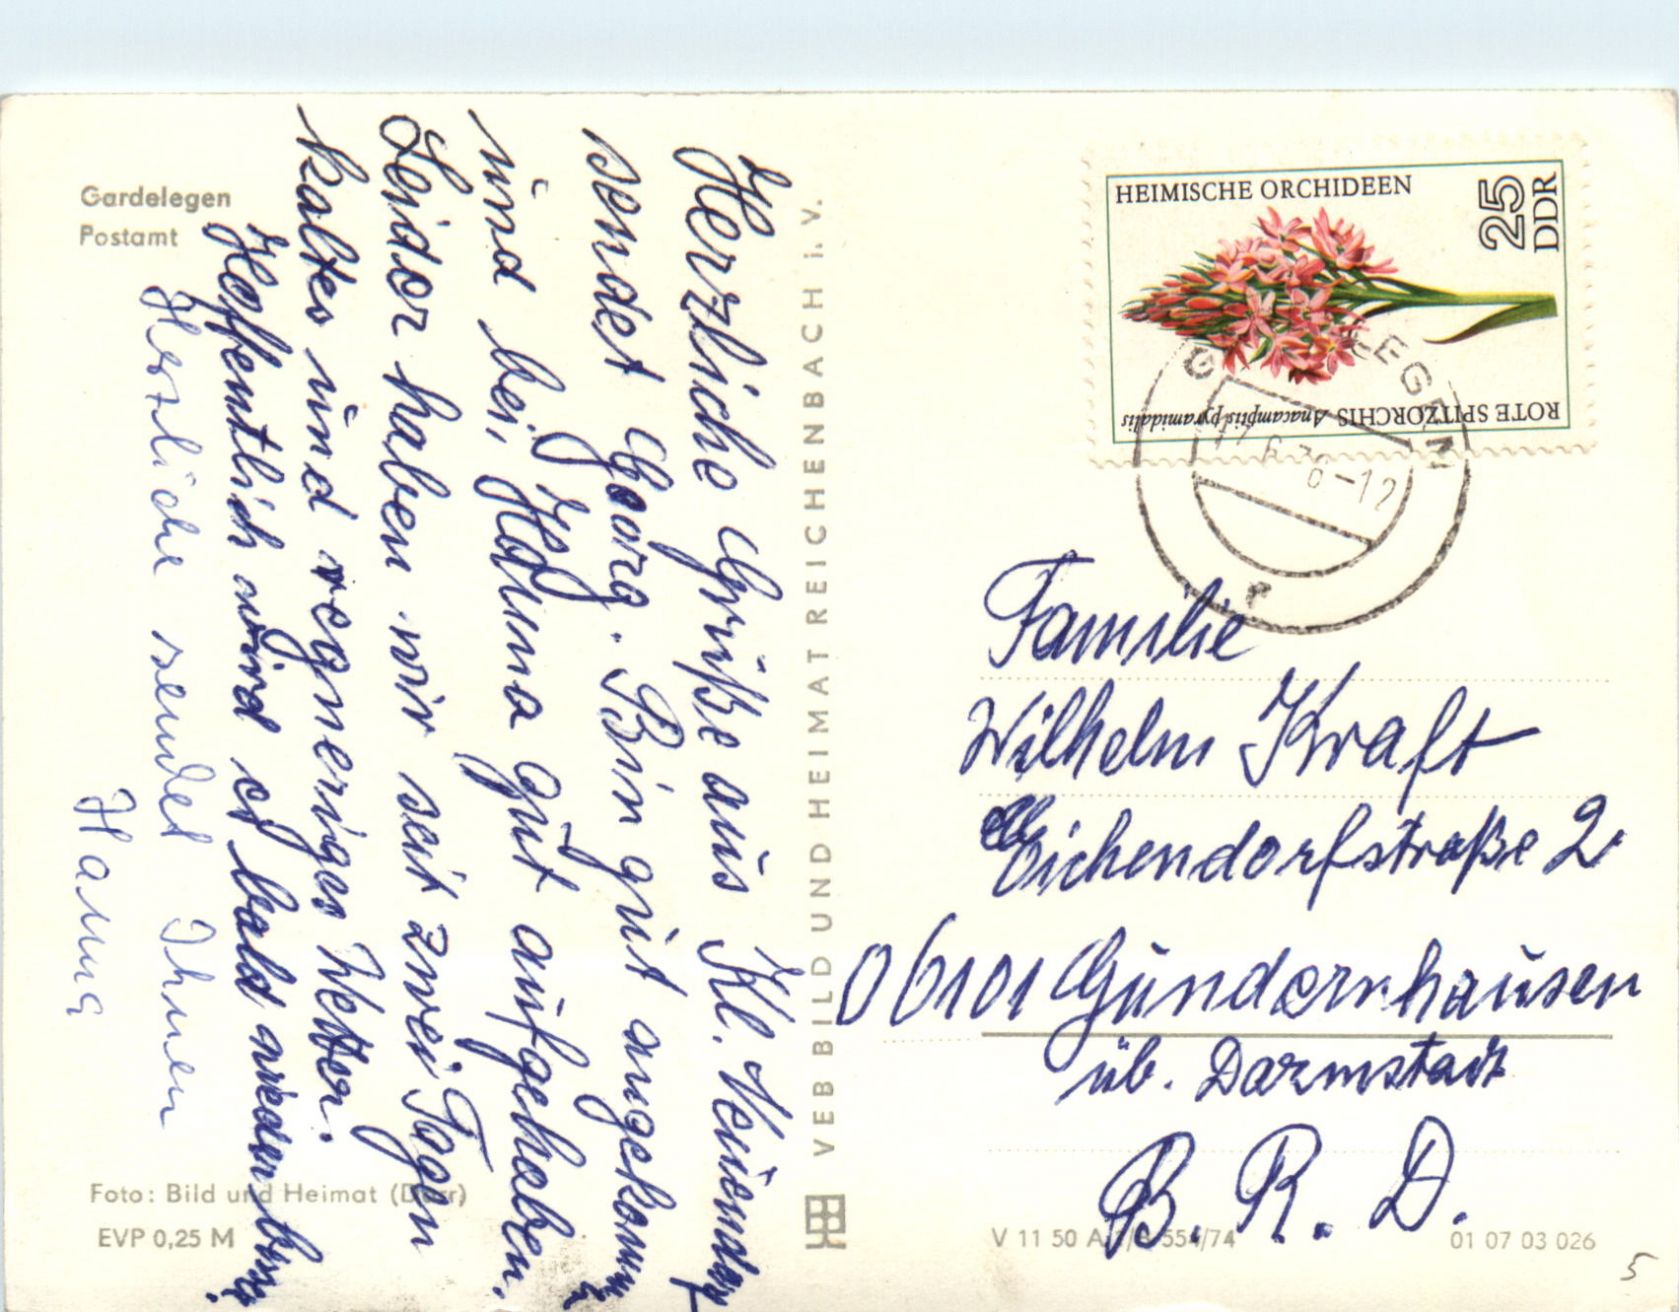 Gardelegen
Postamt
Herzliche Grüße aus Kl. Neuendorf
sendet Georg. Bin gut angekomm
und bei Hanna gut aufgehoben.
Leider haben wir seit zwei Tagen
kaltes und regneriges Wetter.
Hoffentlich wird es bald wieder
Herzliche sendet Ihnen
Hanna
Foto: Bild und Heimat (Darr)
EVP 0,25 M
VEB BILD UND HEIMAT REICHENBACH i. V.
HEIMISCHE ORCHIDEEN
25
DDR
ROTE SPITZORCHIS Anacamptis pyramidalis
Familie
Wilhelm Kraft
Eichendorfstraße 2
06101 Gundernhausen
üb. Darmstadt
B. R. D.
V 11 50 554/74
01 07 03 026
5